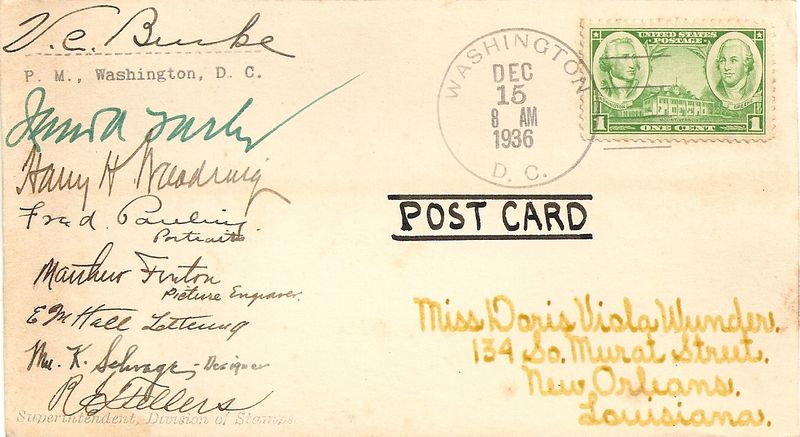 V. C. Burke
P. M., Washington, D. C.
Harry H Woodring
Fred. Pauling
Portraits
Matthew Fenton
Picture Engraver.
E M Hall Lettering
Wm. K. Schrage - Designer
R E Fellers
Superintendent, Division of Stamps.
WASHINGTON
DEC
15
8 AM
1936
D. C.
UNITED STATES
POSTAGE
1 ONE CENT 1
POST CARD
Miss Doris Viola Wunder.
134 So. Murat Street.
New Orleans.
Louisiana.